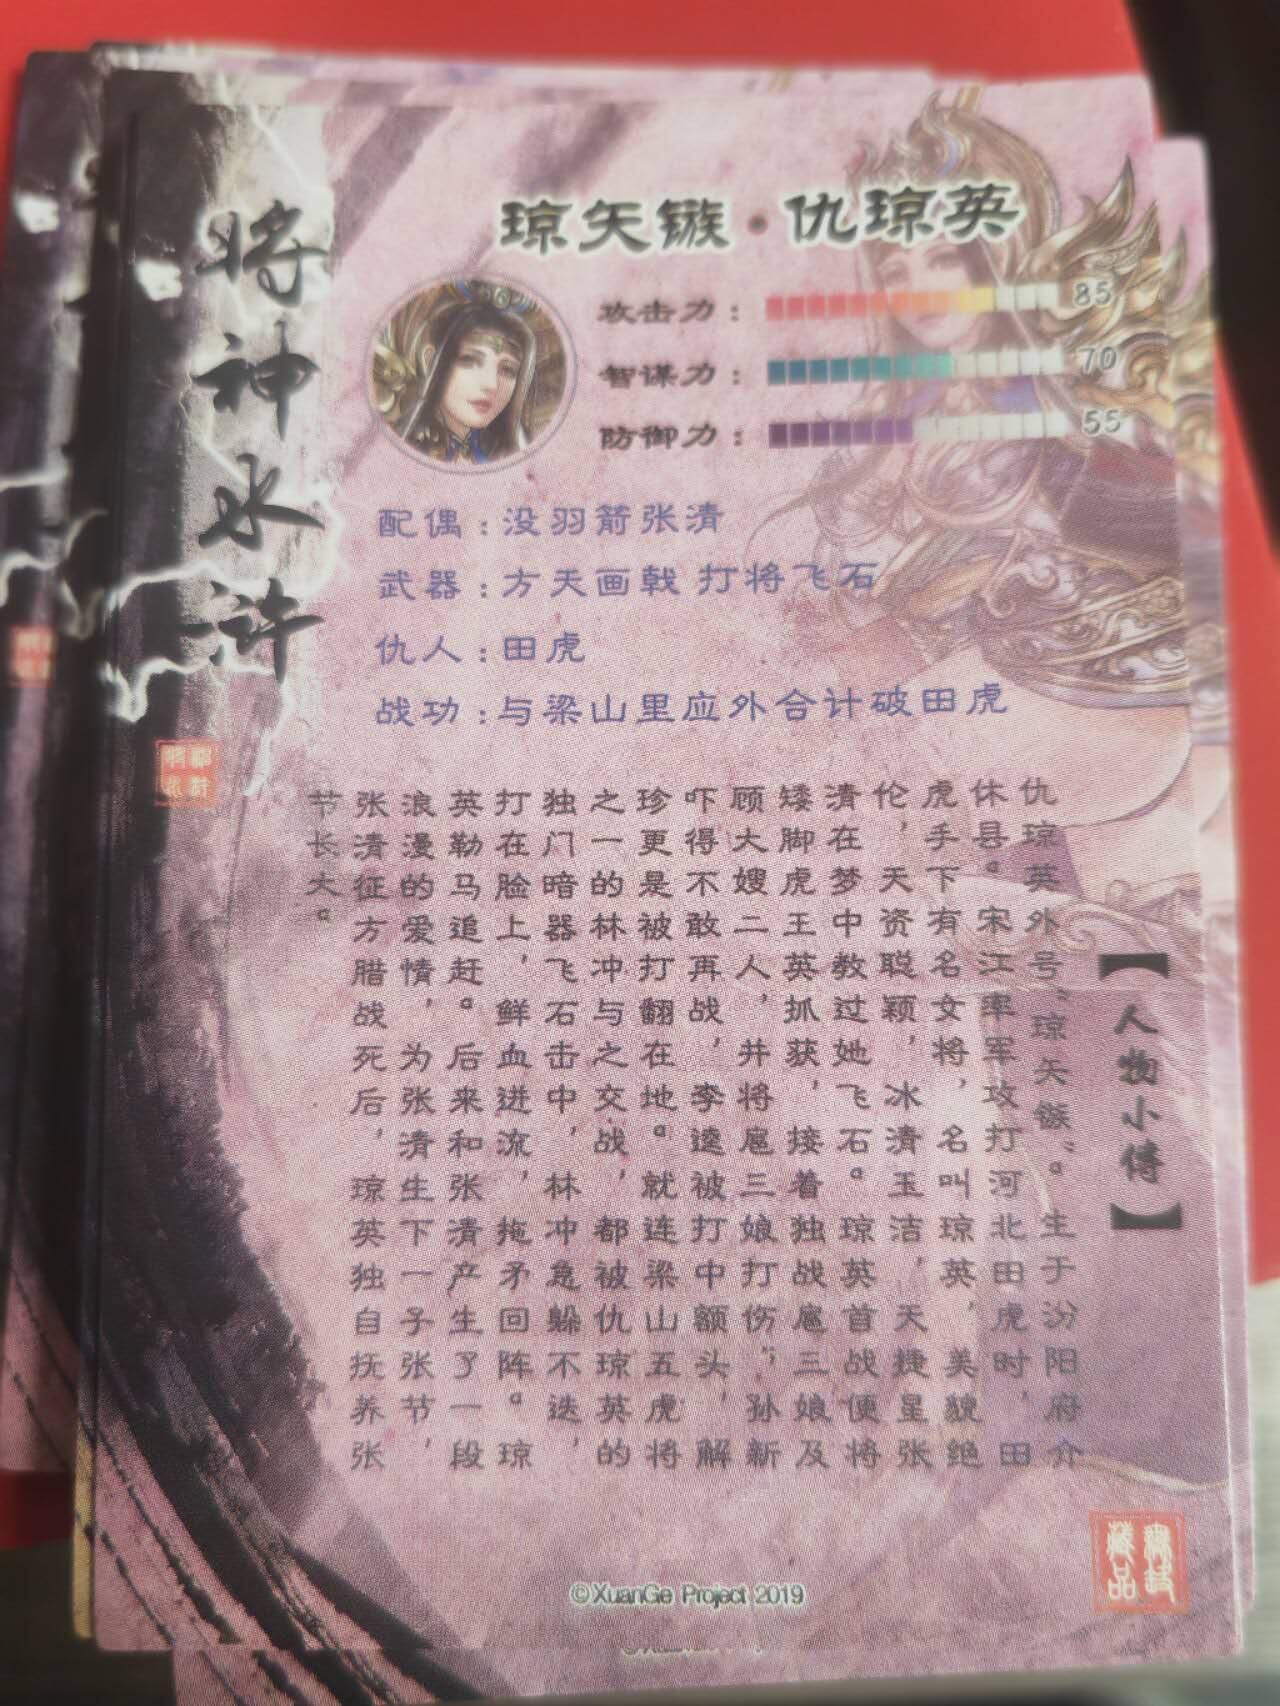 将神水浒
琼矢镞·仇琼英
攻击力：85
智谋力：70
防御力：55
配偶：没羽箭张清
武器：方天画戟 打将飞石
仇人：田虎
战功：与梁山里应外合计破田虎
【人物小传】
仇琼英外号“琼矢镞”。生于汾阳府介
休县。宋江率军攻打河北田虎时，田
虎手下有名女将，名叫琼英，美貌绝
伦，天资聪颖，冰清玉洁，天捷星张
清在梦中教过她飞石。琼英首战便将
矮脚虎王英抓获，接着独战扈三娘及
顾大嫂二人，并将扈三娘打伤，孙新
吓得不敢再战，李逵被打中额头，解
珍更是被打翻在地。就连梁山五虎将
之一的林冲与之交战，都被仇琼英的
独门暗器飞石击中，林冲急躲不迭，
打在脸上，鲜血迸流，拖矛回阵。琼
英勒马追赶。后来和张清产生了一段
浪漫的爱情，为张清生下一子张节，
张清征方腊战死后，琼英独自抚养张
节长大。
©XuanGe Project 2019